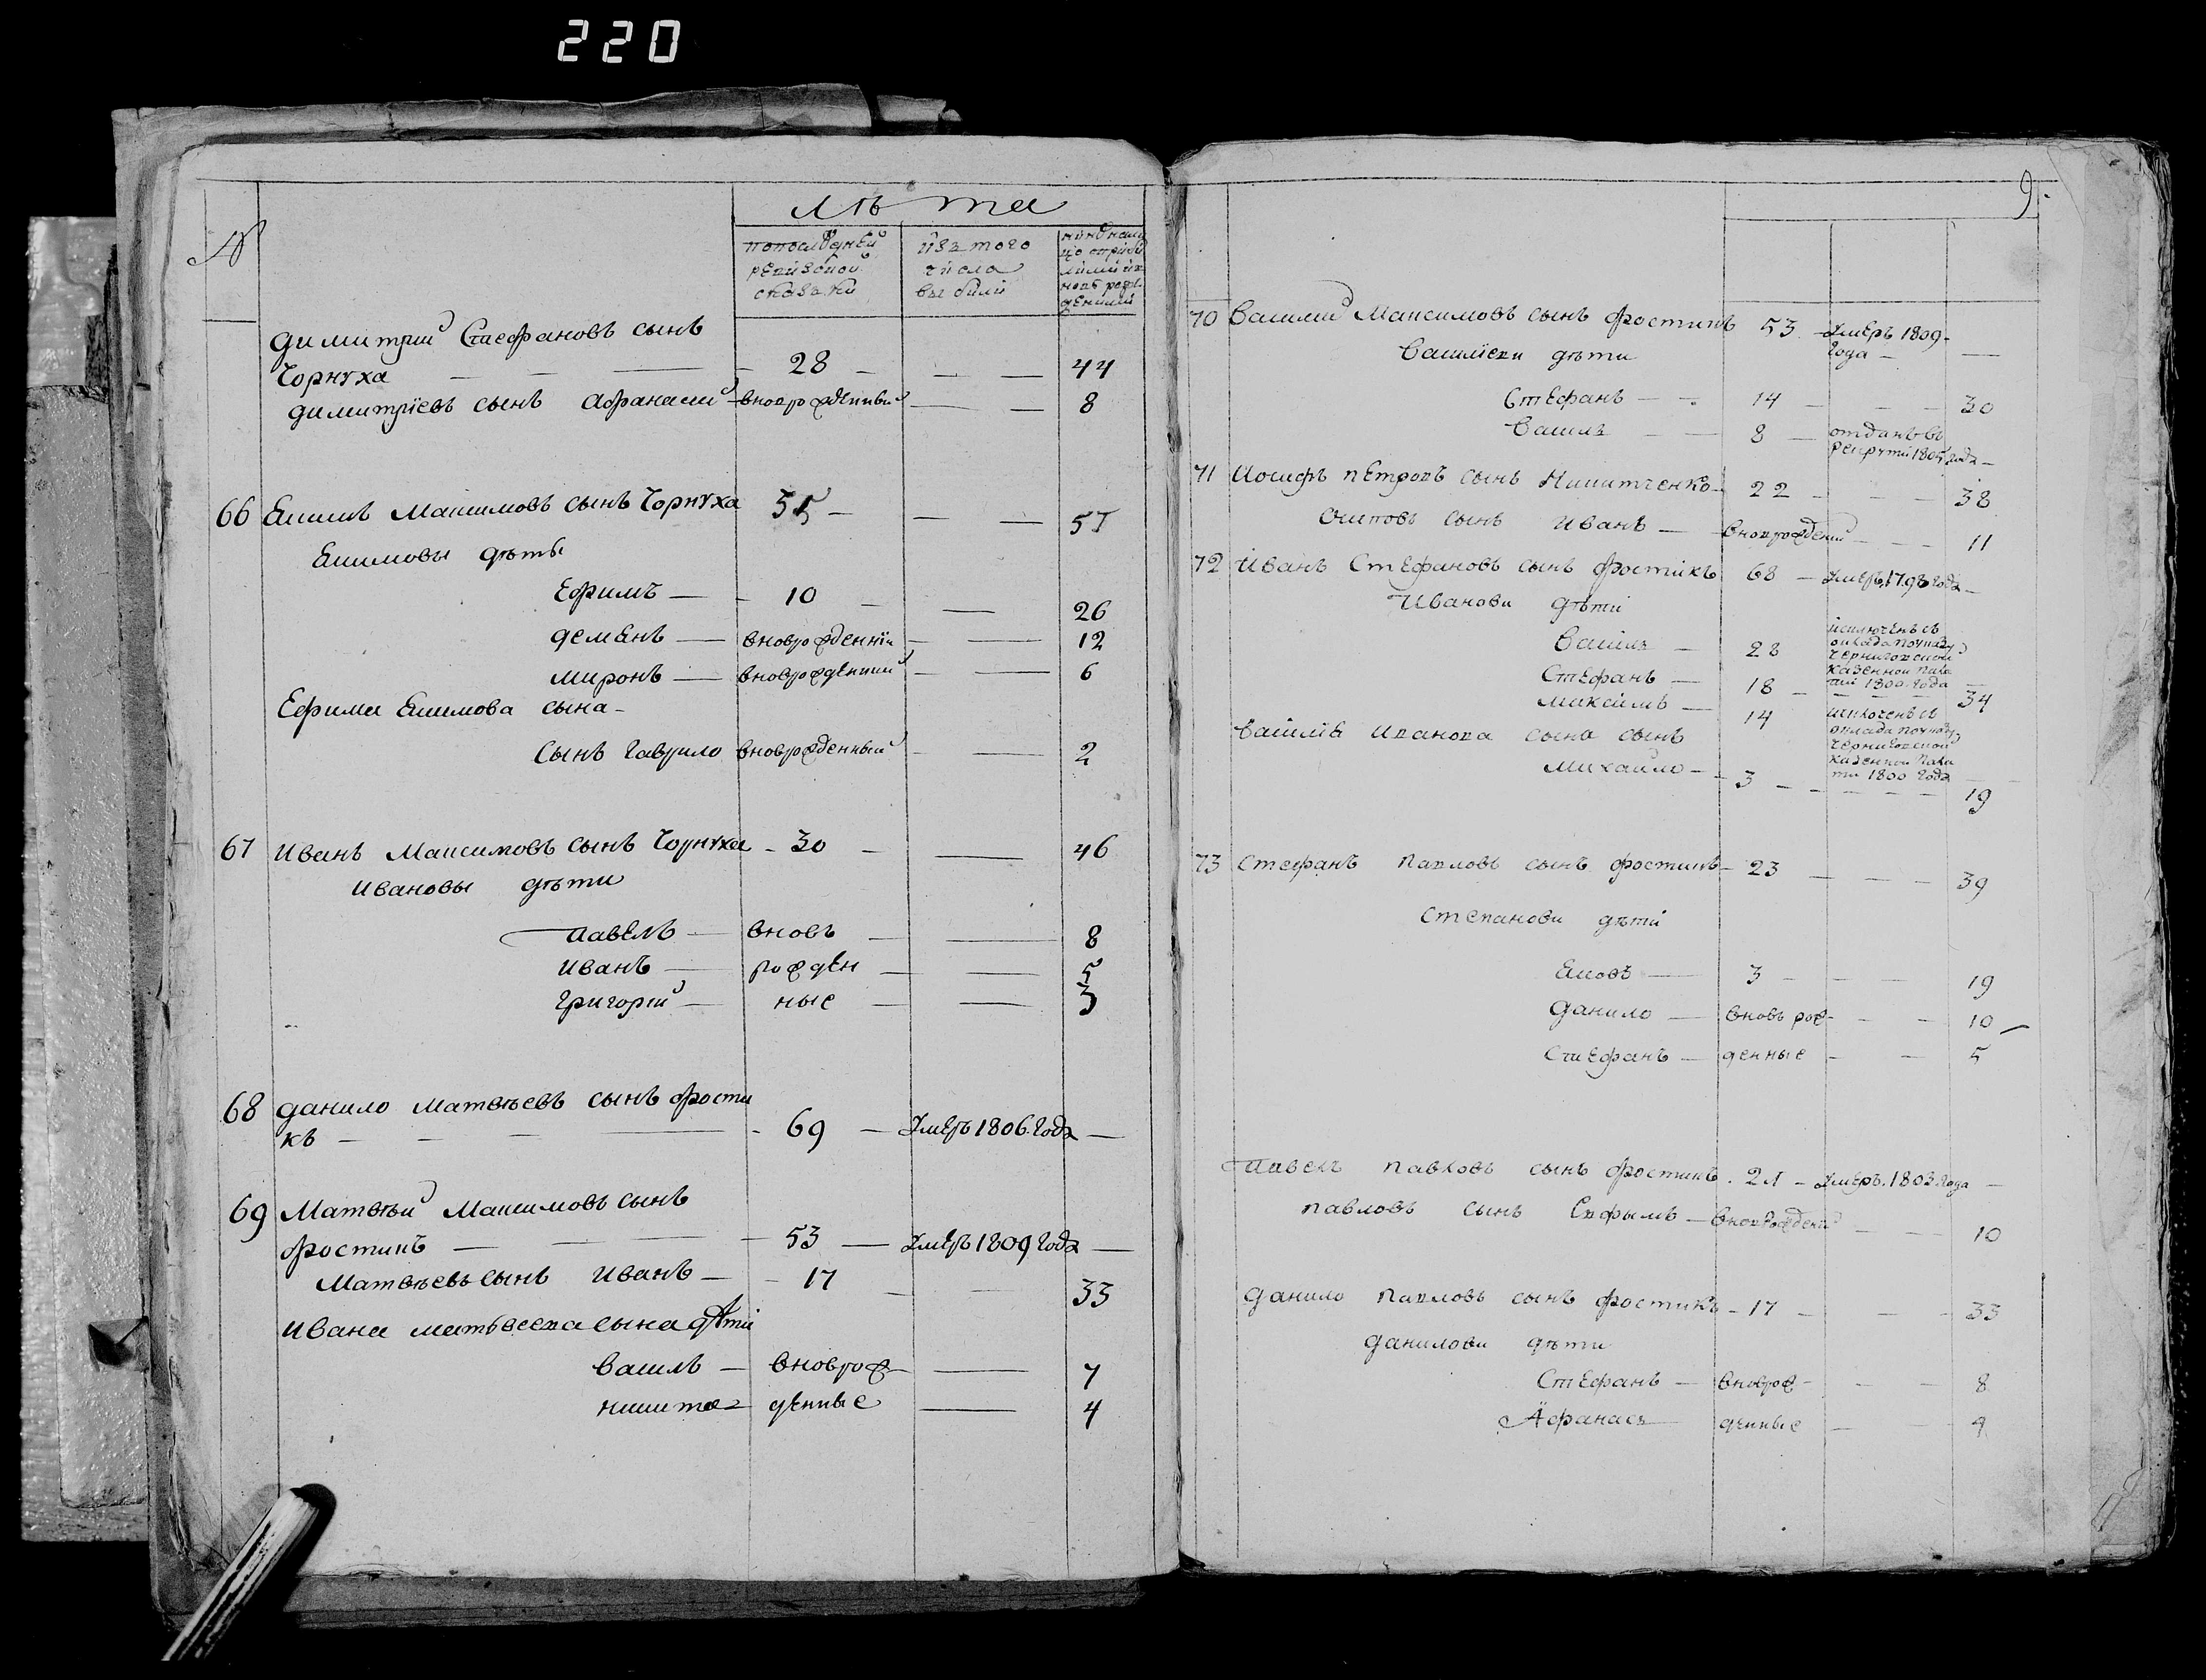 220
№
Лѣта
попослѣдней ревизской сказки
изъ того числа выбыли
Димитрий Стефановъ сынъ
Чорнуха — 28 — 44
Димитрїевъ сынъ Афанасий вноврожденный — 8
66 Екимъ Максимовъ сынъ Чорнуха — 57
Екимовы дѣти
Ефимъ — 10 — 26
Деменъ — вноврожденнїй — 12
Миронъ — вноврожденний — 6
Ефима Екимова сына
Сынъ Гаврило вноврожденный — 2
67 Иванъ Максимовъ сынъ Чорнуха — 30 — 46
Ивановы дѣти
Павелъ — вновъ — 8
Иванъ — рожден — 5
Григорий — ные — 3
68 Данило Матвѣевъ сынъ Фости
къ — 69 — Умеръ 1806 года —
69 Матвѣй Максимовъ сынъ
Фостикъ — 53 — Умеръ 1809 года —
Матвѣевъ сынъ Иванъ — 17 — 33
Ивана Матвеева сына дѣти
Василь — вноврож — 7
Никита — денные — 4
9.
70 Василий Максимовъ сынъ Фостикъ 53 — Умеръ 1809 —
года —
Василїеви дѣти
Стефанъ — 14 — 30
Василъ — 8 — отданъ въ
рекрути 1805 года —
71 Иосифъ Петровъ сынъ Никитченко — 22 — 38
Осиповъ сынъ Иванъ — вноврожденний — 11
72 Иванъ Стефановъ сынъ Фостикъ 68 — Умеръ 1798 года —
Иванови дѣти
Василъ — 28 исключенъ съ
оклада по указу
Черниговской
Казенной пала
ти 1800 года
Стефанъ — 18 — 34
Максимъ — 14 исключенъ съ
оклада по указу
Черниговской
Казенной пала
ти 1800 года
Василїя Иванова сына сынъ
Михайло — 3 — 19
73 Стефанъ Павловъ сынъ Фостикъ — 23 — 39
Степанови дѣти
Яковъ — 3 — 19
Данило — вновъ рож — 10
Стефанъ — денные — 5
Павелъ Павловъ сынъ Фостикъ. 21 — Умеръ. 1803. года —
Павловъ сынъ — вноврожденний — 10
Данило Павловъ сынъ Фостикъ — 17 — 33
Данилови дѣти
Стефанъ — вноврож — 8
Афанасъ — денные — 4